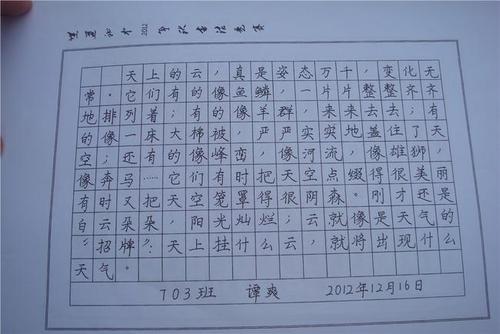 2012
天上的云，真是姿态万千，变化无
常。它们有的像鱼鳞，一片片整整齐齐
地排列着；有的像羊群，来来去去；有
的像一床大棉被，严严实实地盖住了天
空；还有的像峰峦，像河流，像雄狮，
像奔马……它们有时把天空点缀得很美丽
有时又把天空笼罩得很阴森。刚才还是
白云朵朵，阳光灿烂；云就像是天气的
“招牌”：天上挂什么云，就将出现什么
天气。
703班 谭爽 2012年12月16日